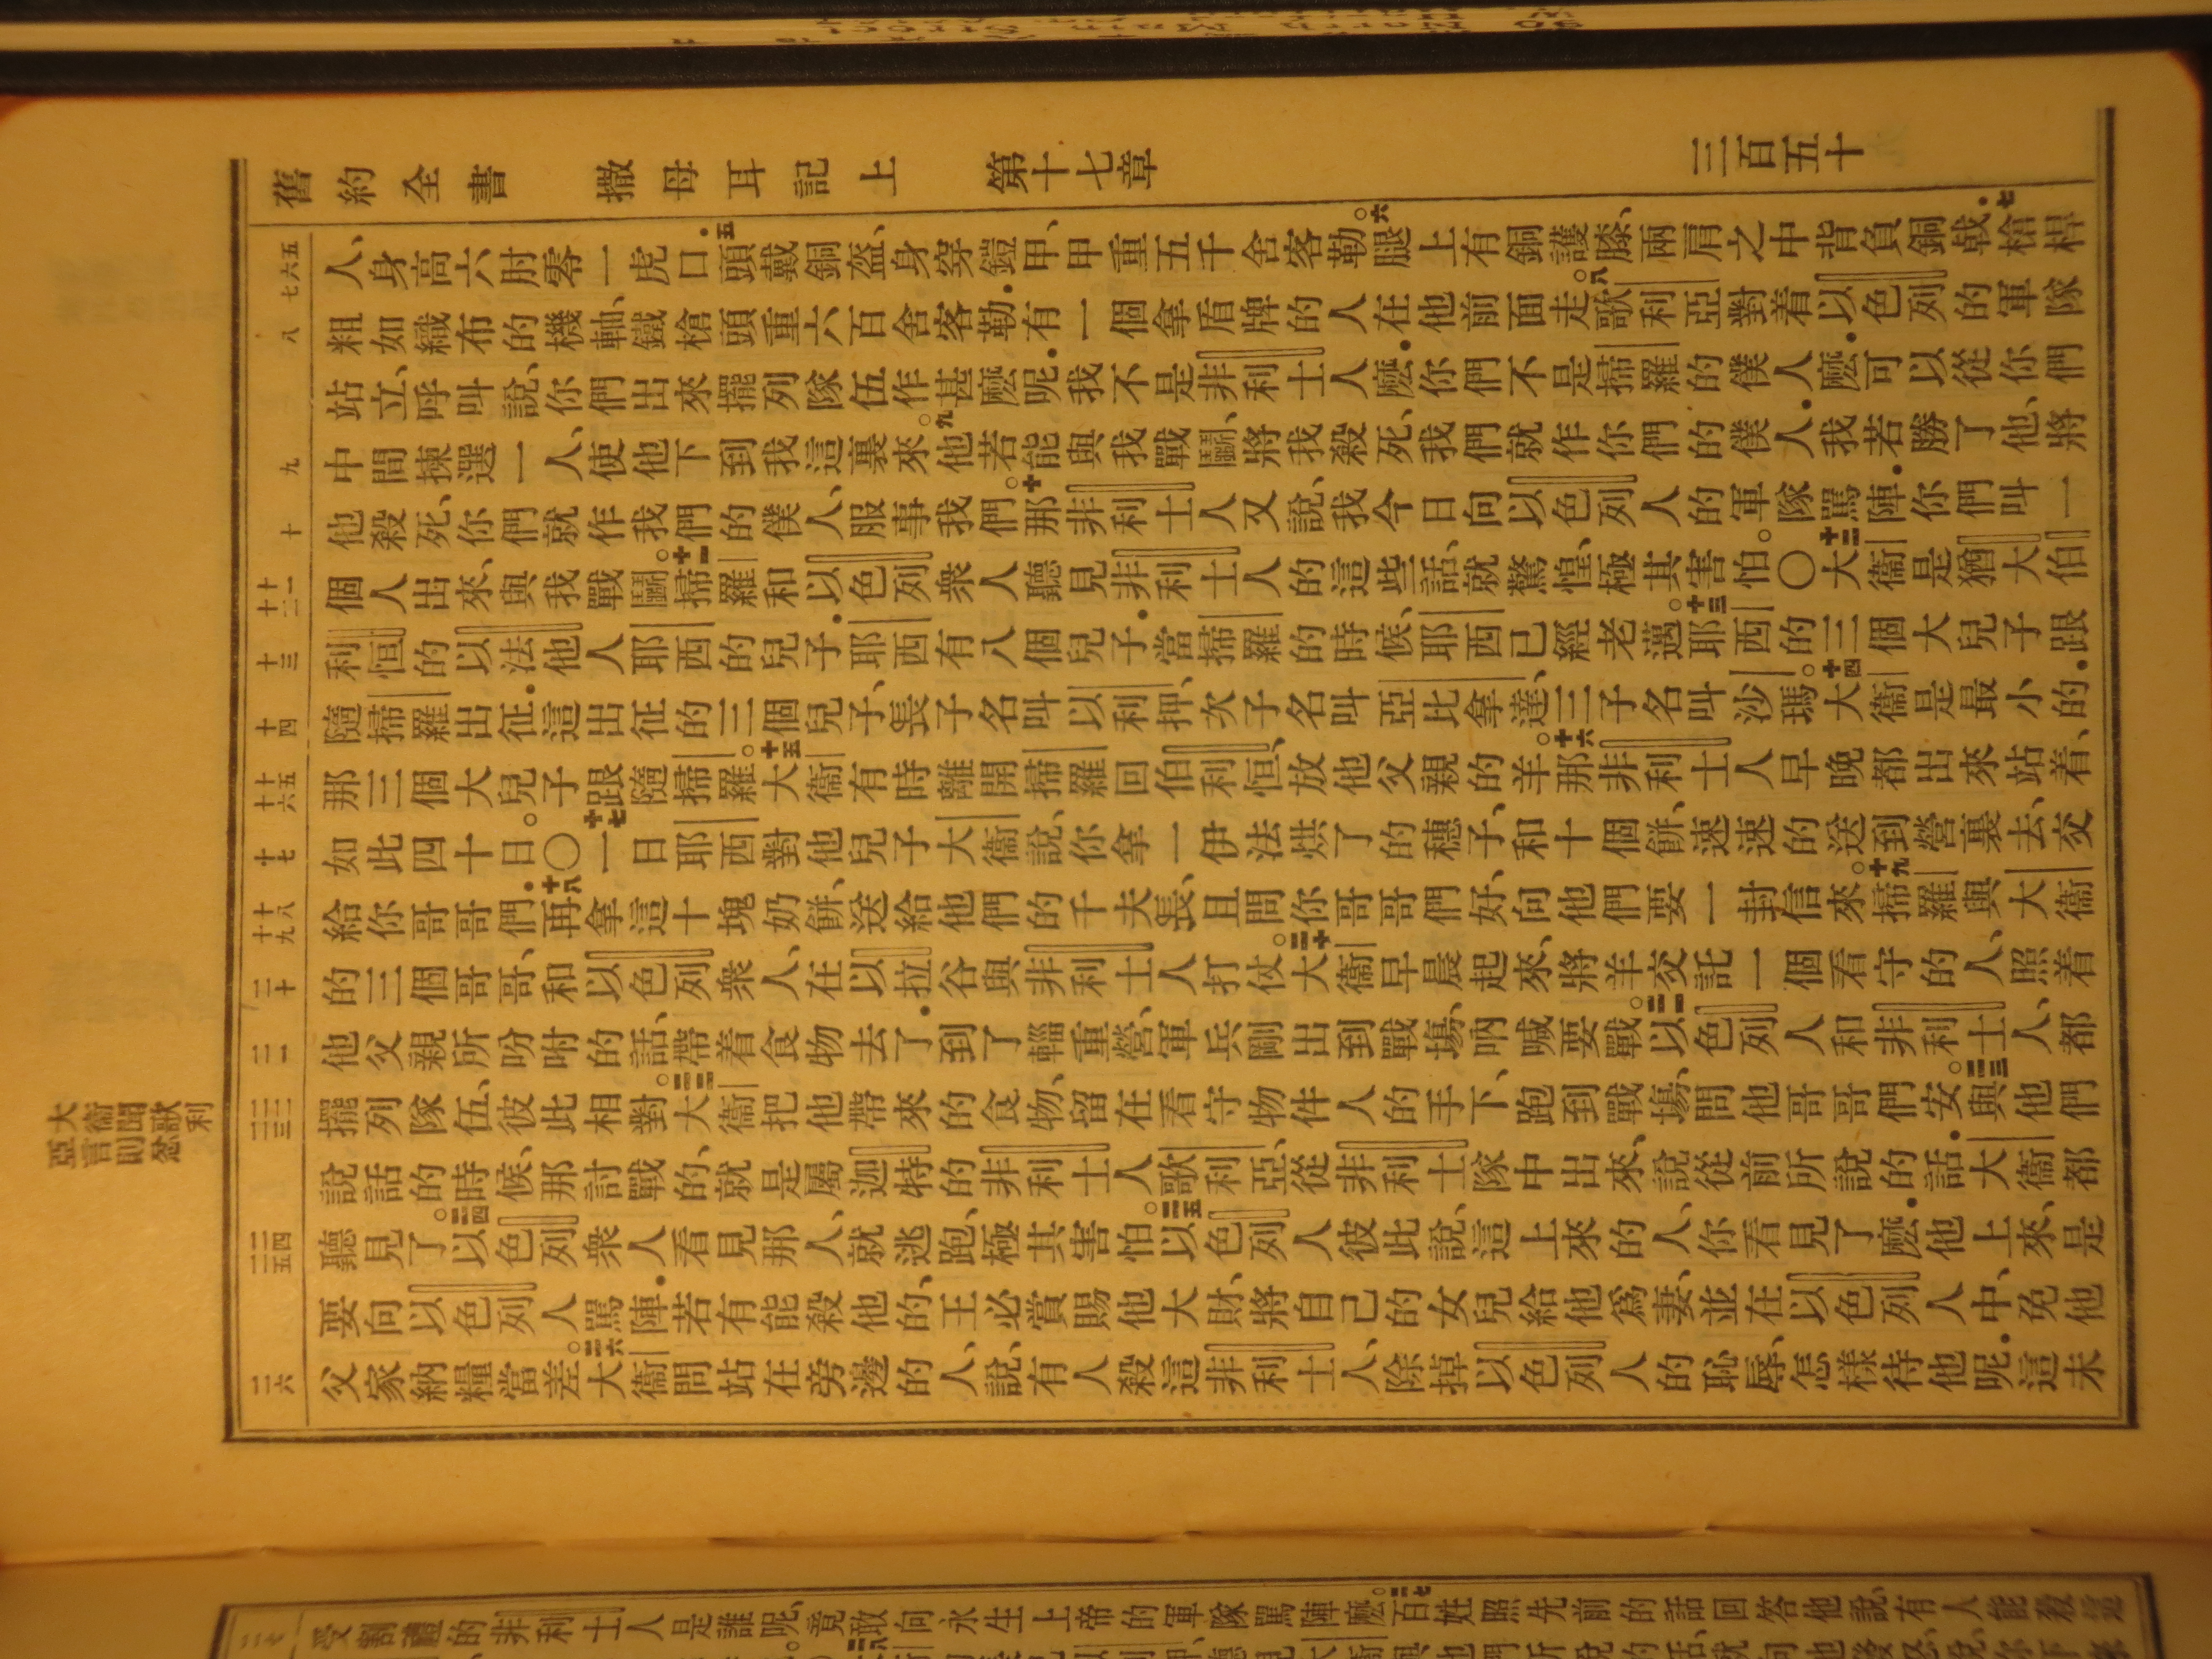 舊約全書　撒母耳記上　第十七章　三百五十
人、身高六肘零一虎口．五頭戴銅盔、身穿鎧甲、甲重五千舍客勒。六腿上有銅護膝、兩肩之中背負銅戟．七槍桿
粗如織布的機軸、鐵槍頭重六百舍客勒．有一個拿盾牌的人在他前面走。八歌利亞對着以色列的軍隊
站立、呼叫說、你們出來擺列隊伍作甚麽呢．我不是非利士人麽．你們不是掃羅的僕人麽．可以從你們
中間揀選一人、使他下到我這裏來。九他若能與我戰鬭、將我殺死、我們就作你們的僕人．我若勝了他、將
他殺死、你們就作我們的僕人、服事我們。十那非利士人又說、我今日向以色列人的軍隊罵陣．你們叫一
個人出來、與我戰鬭。十一掃羅和以色列衆人聽見非利士人的這些話、就驚惶、極其害怕。〇十二大衞是猶大伯
利恒的以法他人耶西的兒子．耶西有八個兒子．當掃羅的時候、耶西已經老邁。十三耶西的三個大兒子跟
隨掃羅出征．這出征的三個兒子、長子名叫以利押、次子名叫亞比拿達、三子名叫沙瑪。十四大衞是最小的．
那三個大兒子跟隨掃羅。十五大衞有時離開掃羅回伯利恒、放他父親的羊。十六那非利士人早晚都出來站着、
如此四十日。〇十七一日耶西對他兒子大衞說、你拿一伊法烘了的穗子、和十個餅、速速的送到營裏去、交
給你哥哥們．十八再拿這十塊奶餅、送給他們的千夫長、且問你哥哥們好、向他們要一封信來。十九掃羅與大衞
的三個哥哥、和以色列衆人、在以拉谷與非利士人打仗。二十大衞早晨起來、將羊交託一個看守的人、照着
他父親所吩咐的話、帶着食物去了．到了輜重營、軍兵剛出到戰塲、吶喊要戰。二一以色列人和非利士人、都
擺列隊伍、彼此相對。二二大衞把他帶來的食物、留在看守物件人的手下、跑到戰塲、問他哥哥們安。二三與他們
說話的時候、那討戰的、就是屬迦特的非利士人歌利亞、從非利士隊中出來、說從前所說的話．大衞都
聽見了。二四以色列衆人看見那人、就逃跑、極其害怕。二五以色列人彼此說、這上來的人、你看見了麽．他上來、是
要向以色列人罵陣．若有能殺他的、王必賞賜他大財、將自己的女兒給他爲妻、並在以色列人中、免他
父家納糧當差。二六大衞問站在旁邊的人、說、有人殺這非利士人、除掉以色列人的恥辱、怎樣待他呢．這未
大衞聞歌利
亞言即忿
受割禮的非利士人是誰呢、竟敢向永生上帝的軍隊罵陣麽。二七百姓照先前的話回答他說、有人能殺這